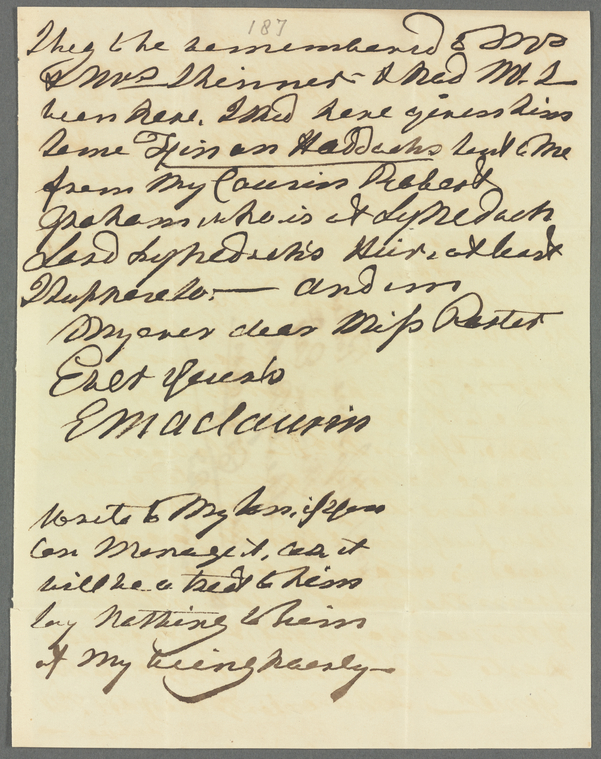 187
I beg to be remembered to Mr
& Mrs Skinner - & had Mr. S
been here, I shd have given him
some Finnan Haddocks sent to me
from my Cousin Robert
Graham, who is at Lynedoch
Lord Lynedoch's Heir, at least
I suppose so. — and am
My ever dear Miss Porter
Ever Yours
E Maclaurin
Write to My Son, if you
can Manage it, as it
will be a treat to him
say Nothing to him
of My being poorly —